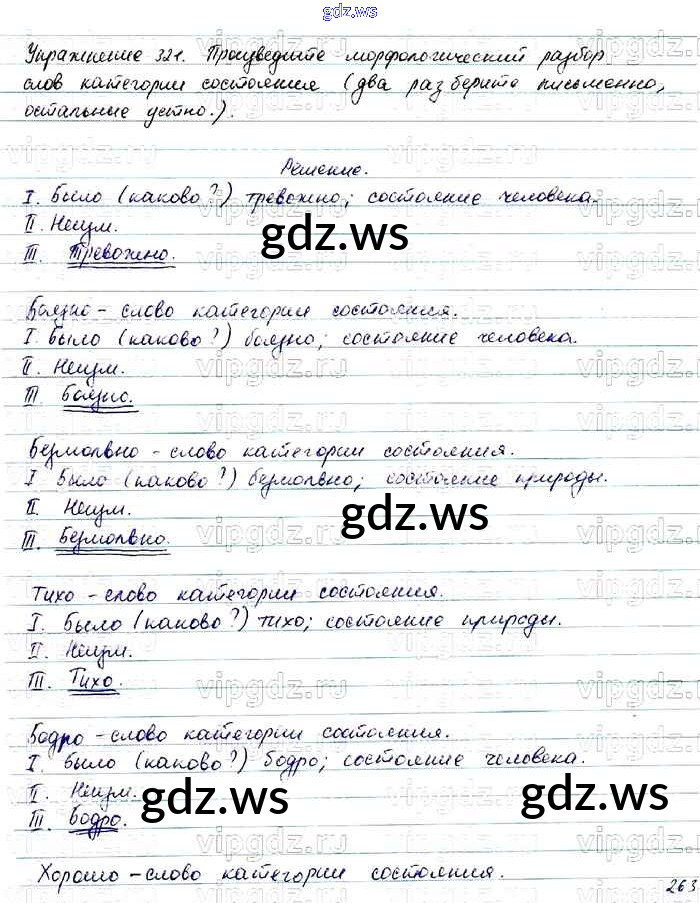 gdz.ws
Упражнение 321. Произведите морфологический разбор
слов категории состояния (два разберите письменно,
остальные устно.).
Решение.
I. Было (каково?) тревожно; состояние человека.
II. Неизм.
III. Тревожно.
gdz.ws
Боязно - слово категории состояния.
I. Было (каково?) боязно; состояние человека.
II. Неизм.
III Боязно.
Безмолвно - слово категории состояния.
I Было (каково?) безмолвно; состояние природы.
II. Неизм.
III. Безмолвно.
gdz.ws
Тихо - слово категории состояния.
I. Было (каково?) тихо; состояние природы.
II. Неизм.
III. Тихо.
Бодро - слово категории состояния.
I. Было (каково?) бодро; состояние человека.
II. Неизм.
III. Бодро.
gdz.ws gdz.ws
Хорошо - слово категории состояния.
263
vipgdz.ru